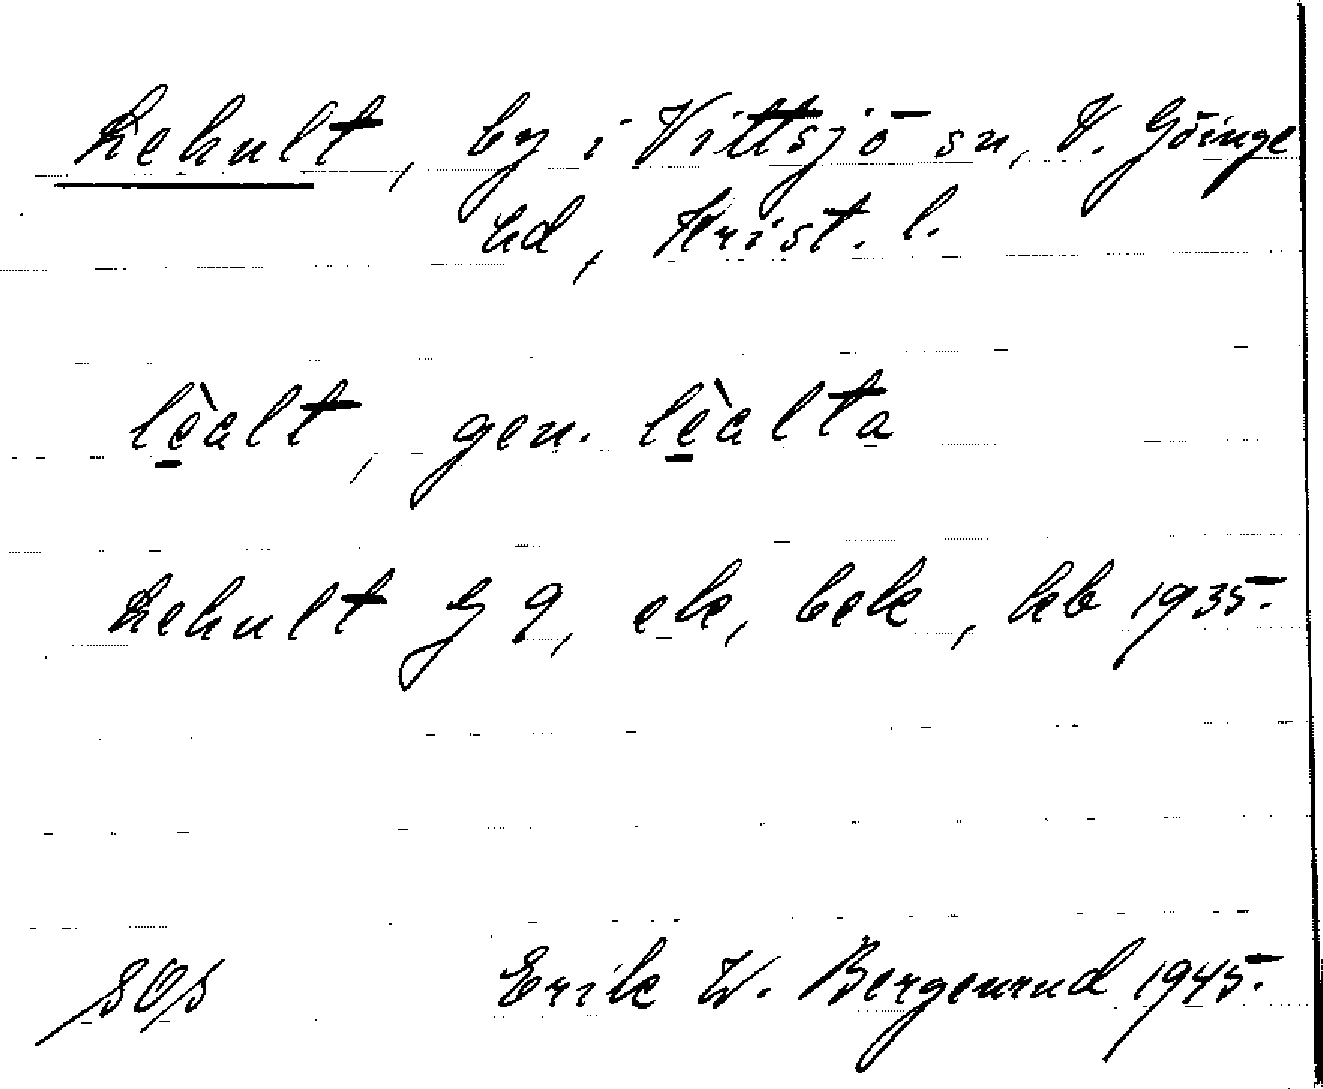 Lehult, by i Vittsjö sn, V. Göinge
hd, Krist. l.
lèalt, gen. lèalta
Lehult J 9, ek, bek, kb 1935.
Erik W. Bergenrud 1945.